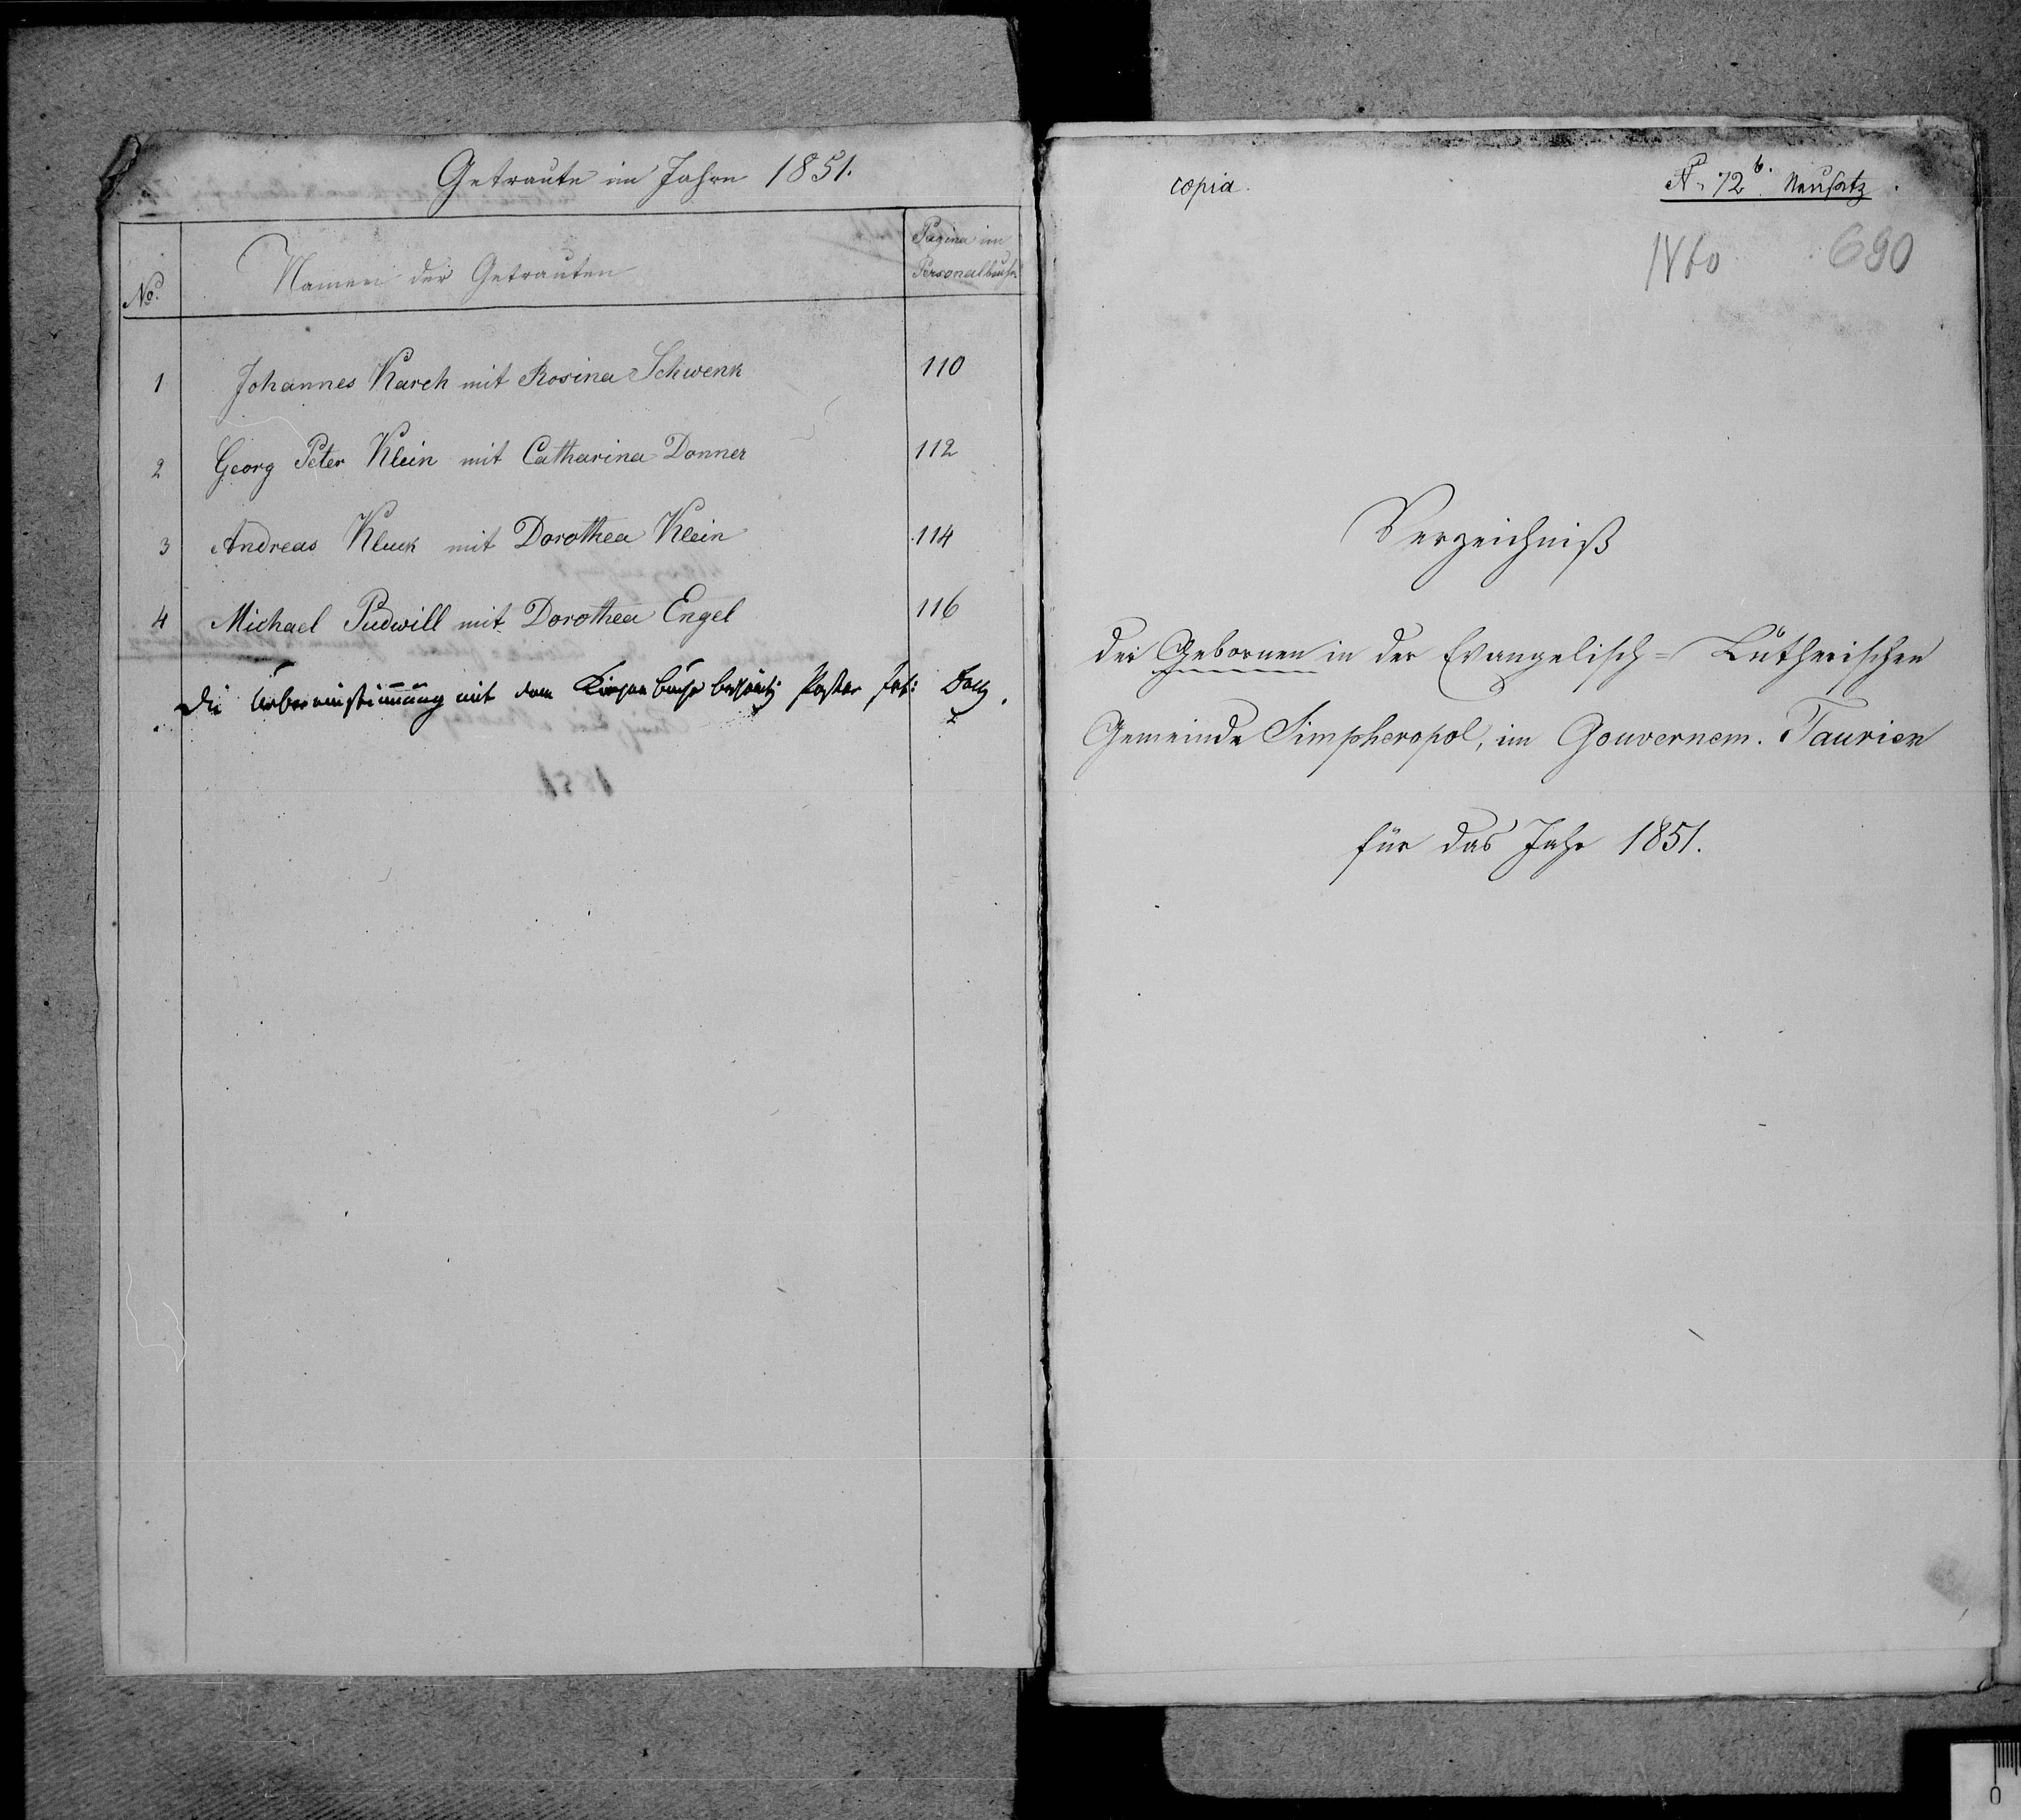 Getraute im Jahre 1851.
No. Namen der Getrauten Pagina im Personalbuche
1 Johannes Karch mit Rosina Schwenk 110
2 Georg Peter Klein mit Catharina Donner 112
3 Andreas Kluck mit Dorothea Klein 114
4 Michael Pudwill mit Dorothea Engel 116
Die Uebereinstimmung mit dem Kirchenbuche bezeugt Pastor
copia.
N. 72 b. Neusatz.
690
Verzeichniß
der Gebornen in der Evangelisch= Lutherischen
Gemeinde Simpheropol, im Gouvernem. Taurien
für das Jahr 1851.
0